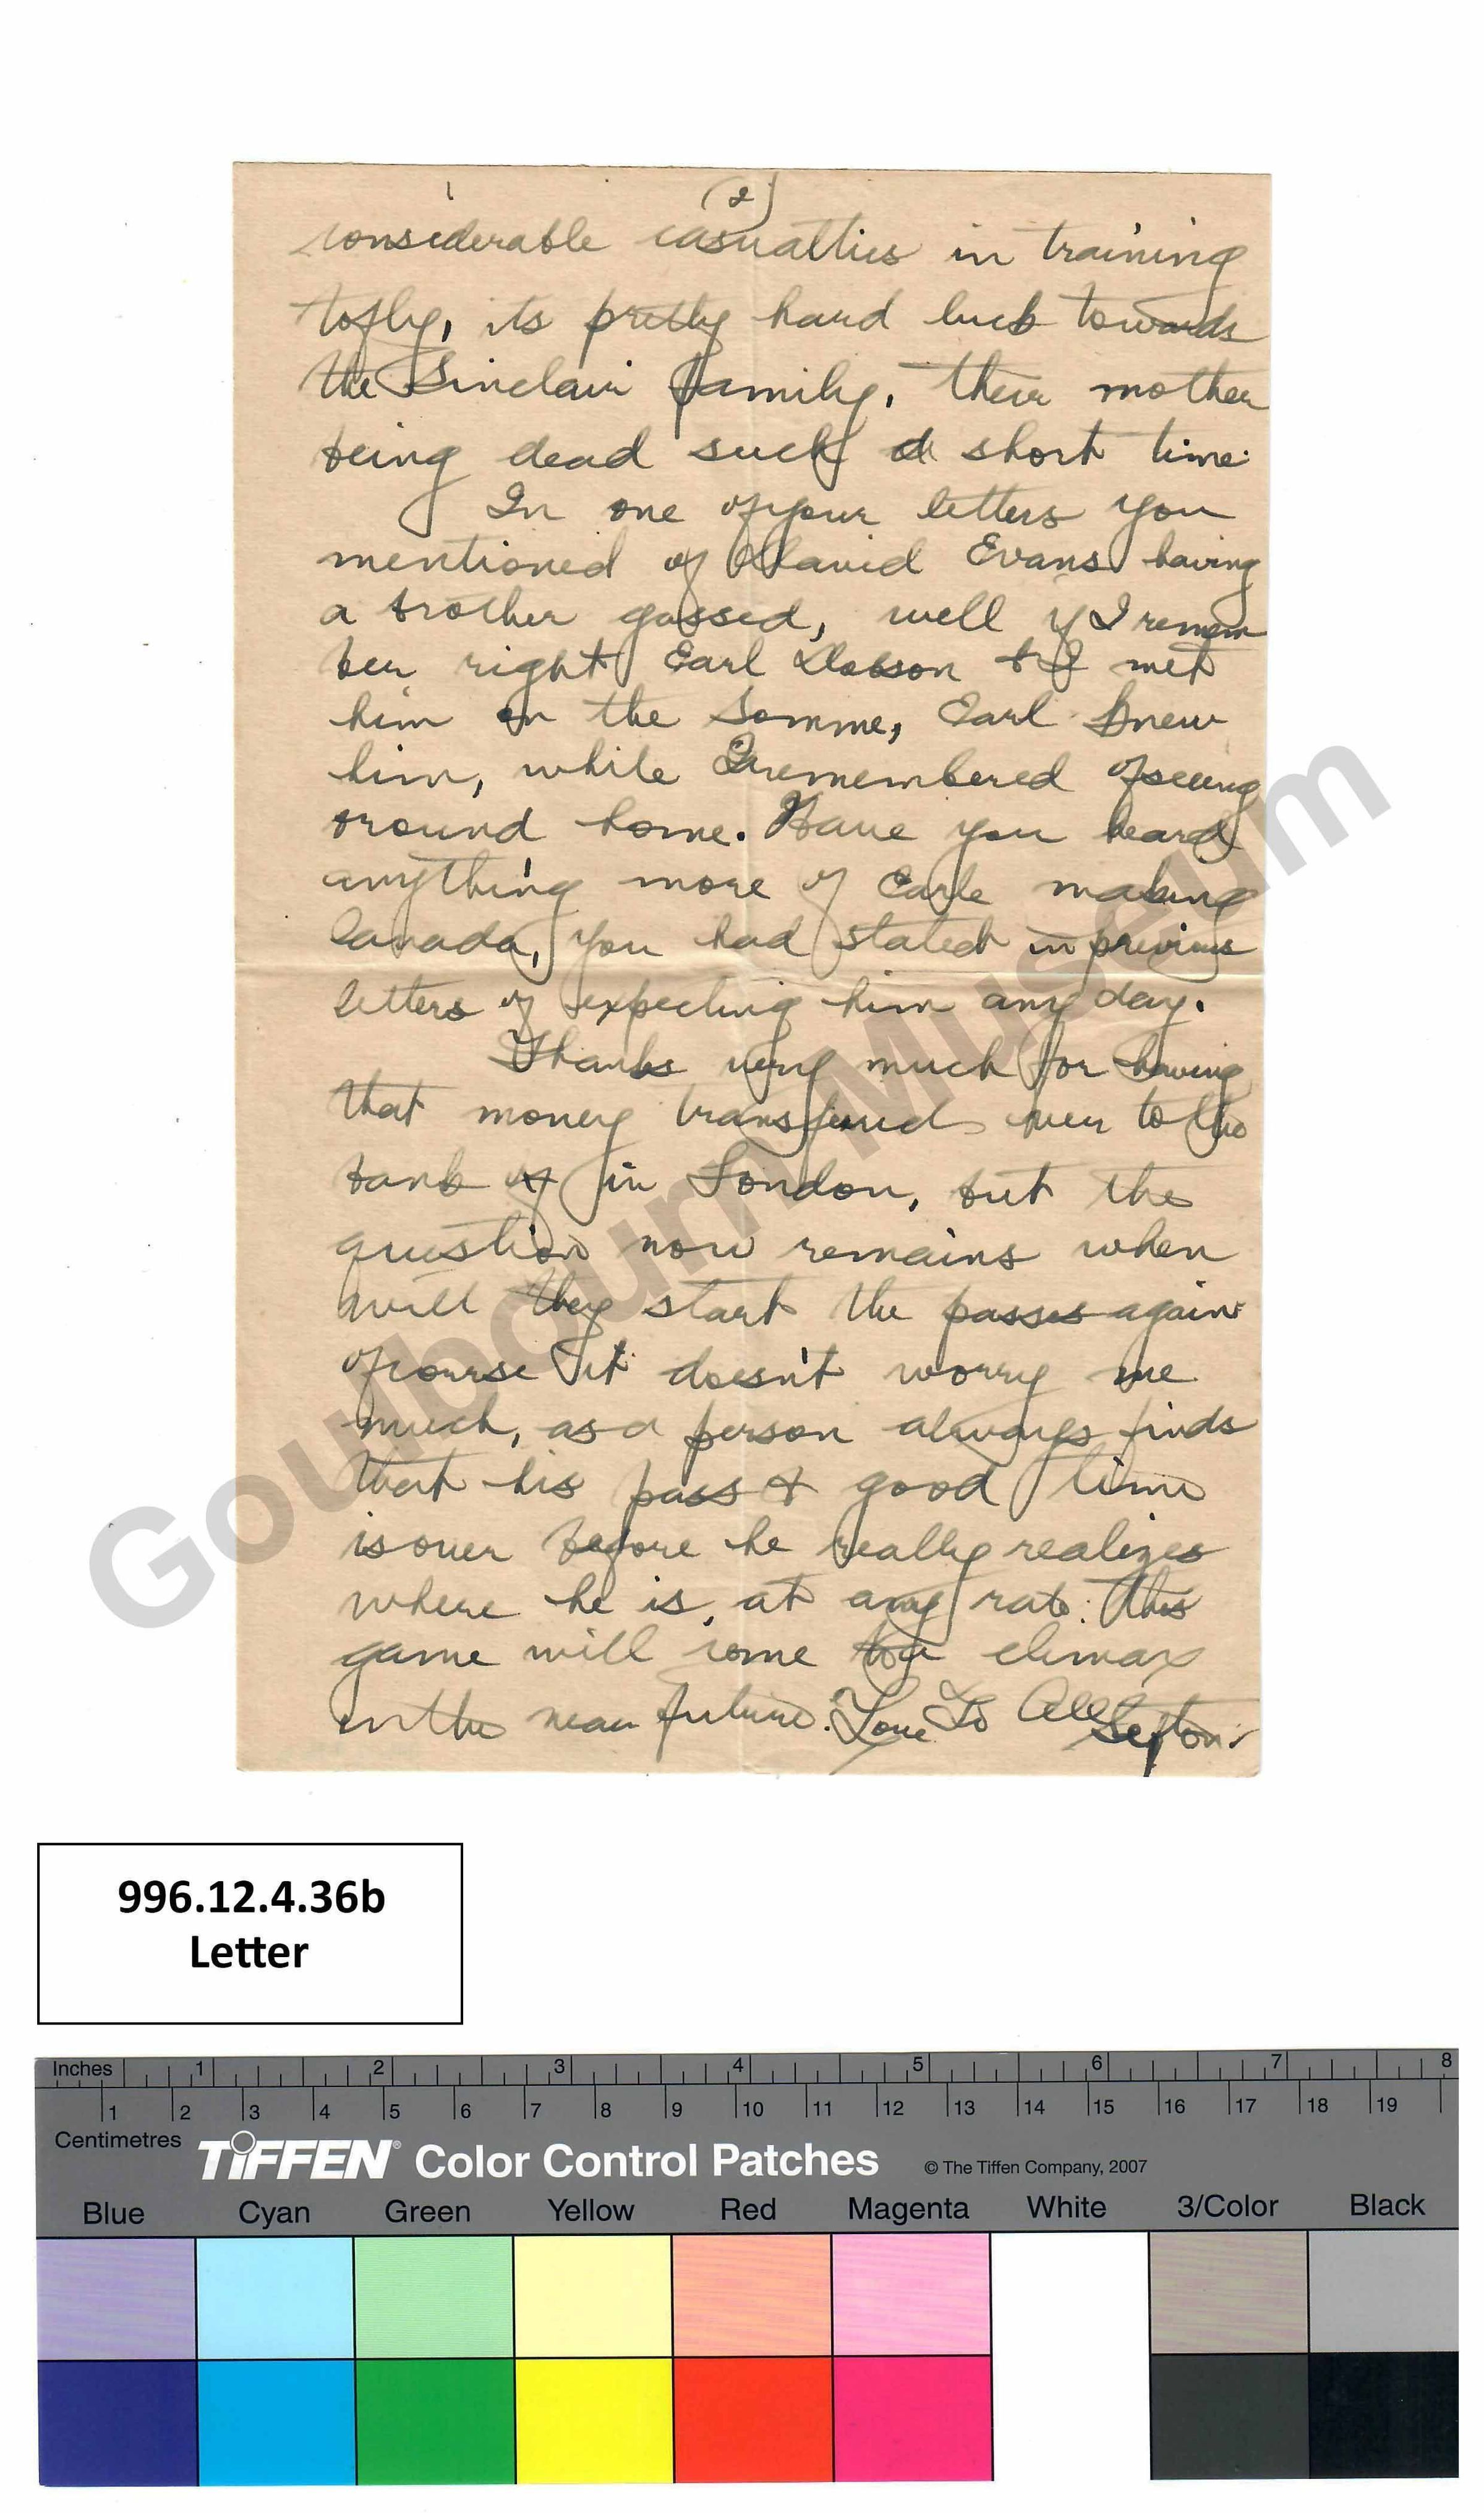 (2)
considerable casualties in training
to fly, its pretty hard luck towards
the Sinclair family, their mother
being dead such a short time.
In one of your letters you
mentioned of David Evans having
a brother gassed, well if I remem
ber right Earl Dobson & I met
him on the Somme, Earl knew
him, while I remembered of seeing
around home. Have you heard
anything more of Earle making
Canada, you had stated in previous
letters of expecting him any day.
Thanks very much for having
that money transfered over to the
bank of in London, but the
question now remains when
will they start the passes again
of course it doesn't worry me
much, as a person always finds
that his pass & good time
is over before he really realizes
where he is, at any rate. This
game will come to a climax
in the near future. Love To All
Sefton.
Goulbourn Museum
996.12.4.36b
Letter
Inches 1 2 3 4 5 6 7 8
1 2 3 4 5 6 7 8 9 10 11 12 13 14 15 16 17 18 19
Centimetres
TIFFEN® Color Control Patches © The Tiffen Company, 2007
Blue Cyan Green Yellow Red Magenta White 3/Color Black